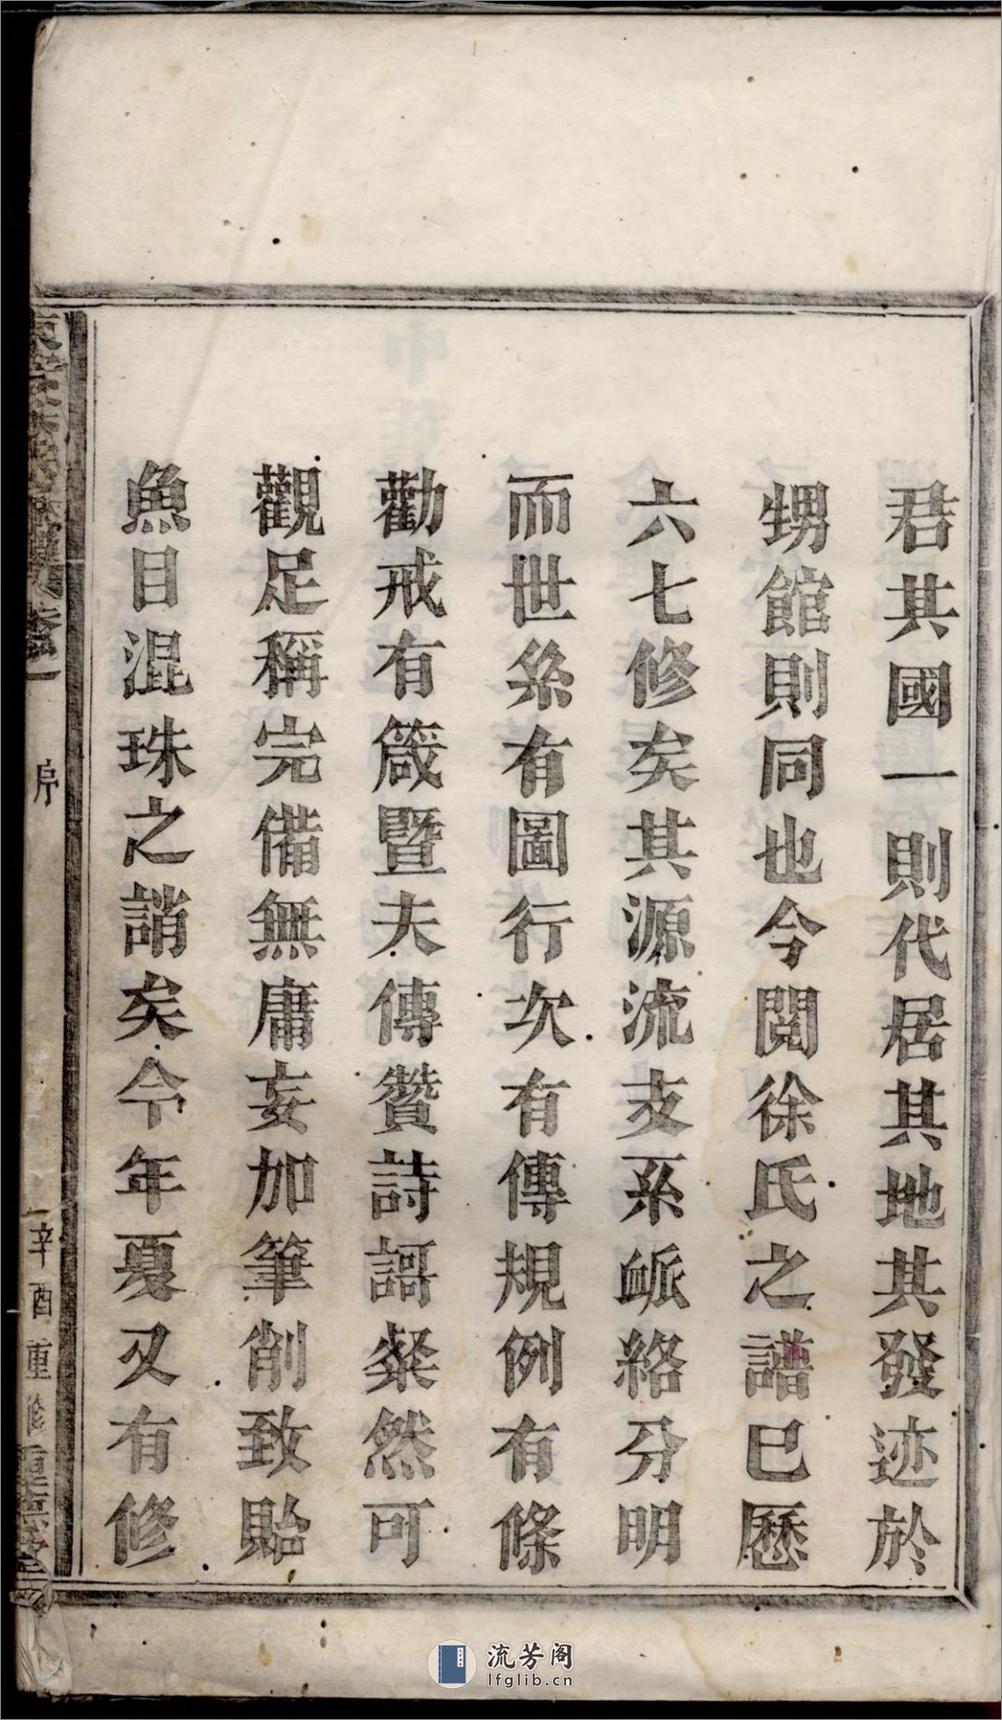 君其國一則代居其地其發迹於
甥館則同也今閱徐氏之譜巳歷
六七修矣其源流支系衇絡分明
而世系有圖行次有傳規例有條
勸戒有箴暨夫傳贊詩謌粲然可
觀足稱完備無庸妄加筆削致貽
魚目混珠之誚矣今年夏又有修
卷一
序
一
辛酉重修
流芳阁
lfglib.cn